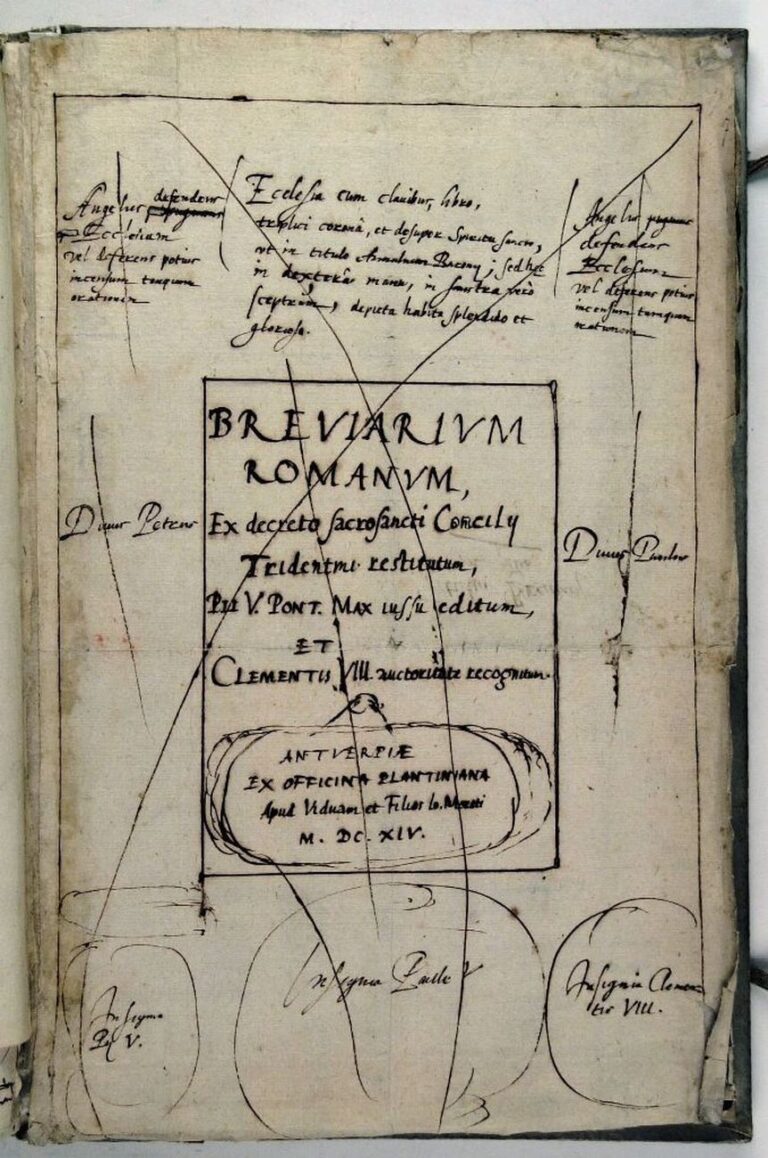 Angelus defendens
Ecclesiam
vel deferens potius
incensum tanquam
orationem
Ecclesia cum clavibus, libro,
triplici coronâ, et desuper Spiritu sancto,
ut in titulo Annalium Barony; sed
in dexterâ manu, in sinistra verò
sceptrum, depicta habitu splendido et
glorioso.
Angelus pugnans
defendens
Ecclesiam
vel deferens potius
incensum tanquam
orationem
BREVIARIVM
ROMANVM,
Ex decreto sacrosancti Concily
Tridentini restitutum,
PII V. PONT. MAX iussu editum,
ET
CLEMENTIS VIII. auctoritate recognitum.
Divus Petrus
Divus Paulus
ANTVERPIÆ
EX OFFICINA PLANTINIANA
Apud Viduam et Filios Io. Moreti
M. DC. XIV.
Insignia
Pij V.
Insignia Pauli V
Insignia Clemen-
tis VIII.